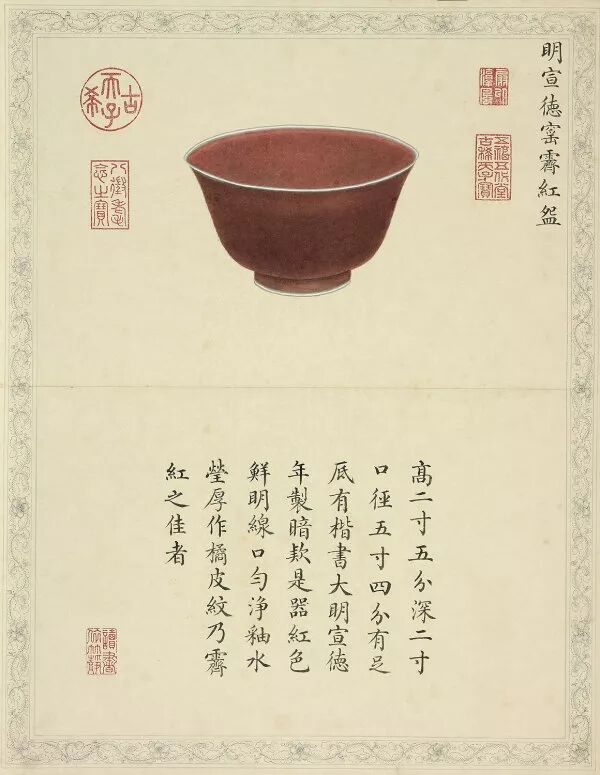 明宣德窰霽紅盌
五福五代堂
古稀天子寶
古希天子
八徵耄念之寶
高二寸五分深二寸
口徑五寸四分有足
底有楷書大明宣德
年製暗欵是器紅色
鮮明線口勻淨釉水
瑩厚作橘皮紋乃霽
紅之佳者